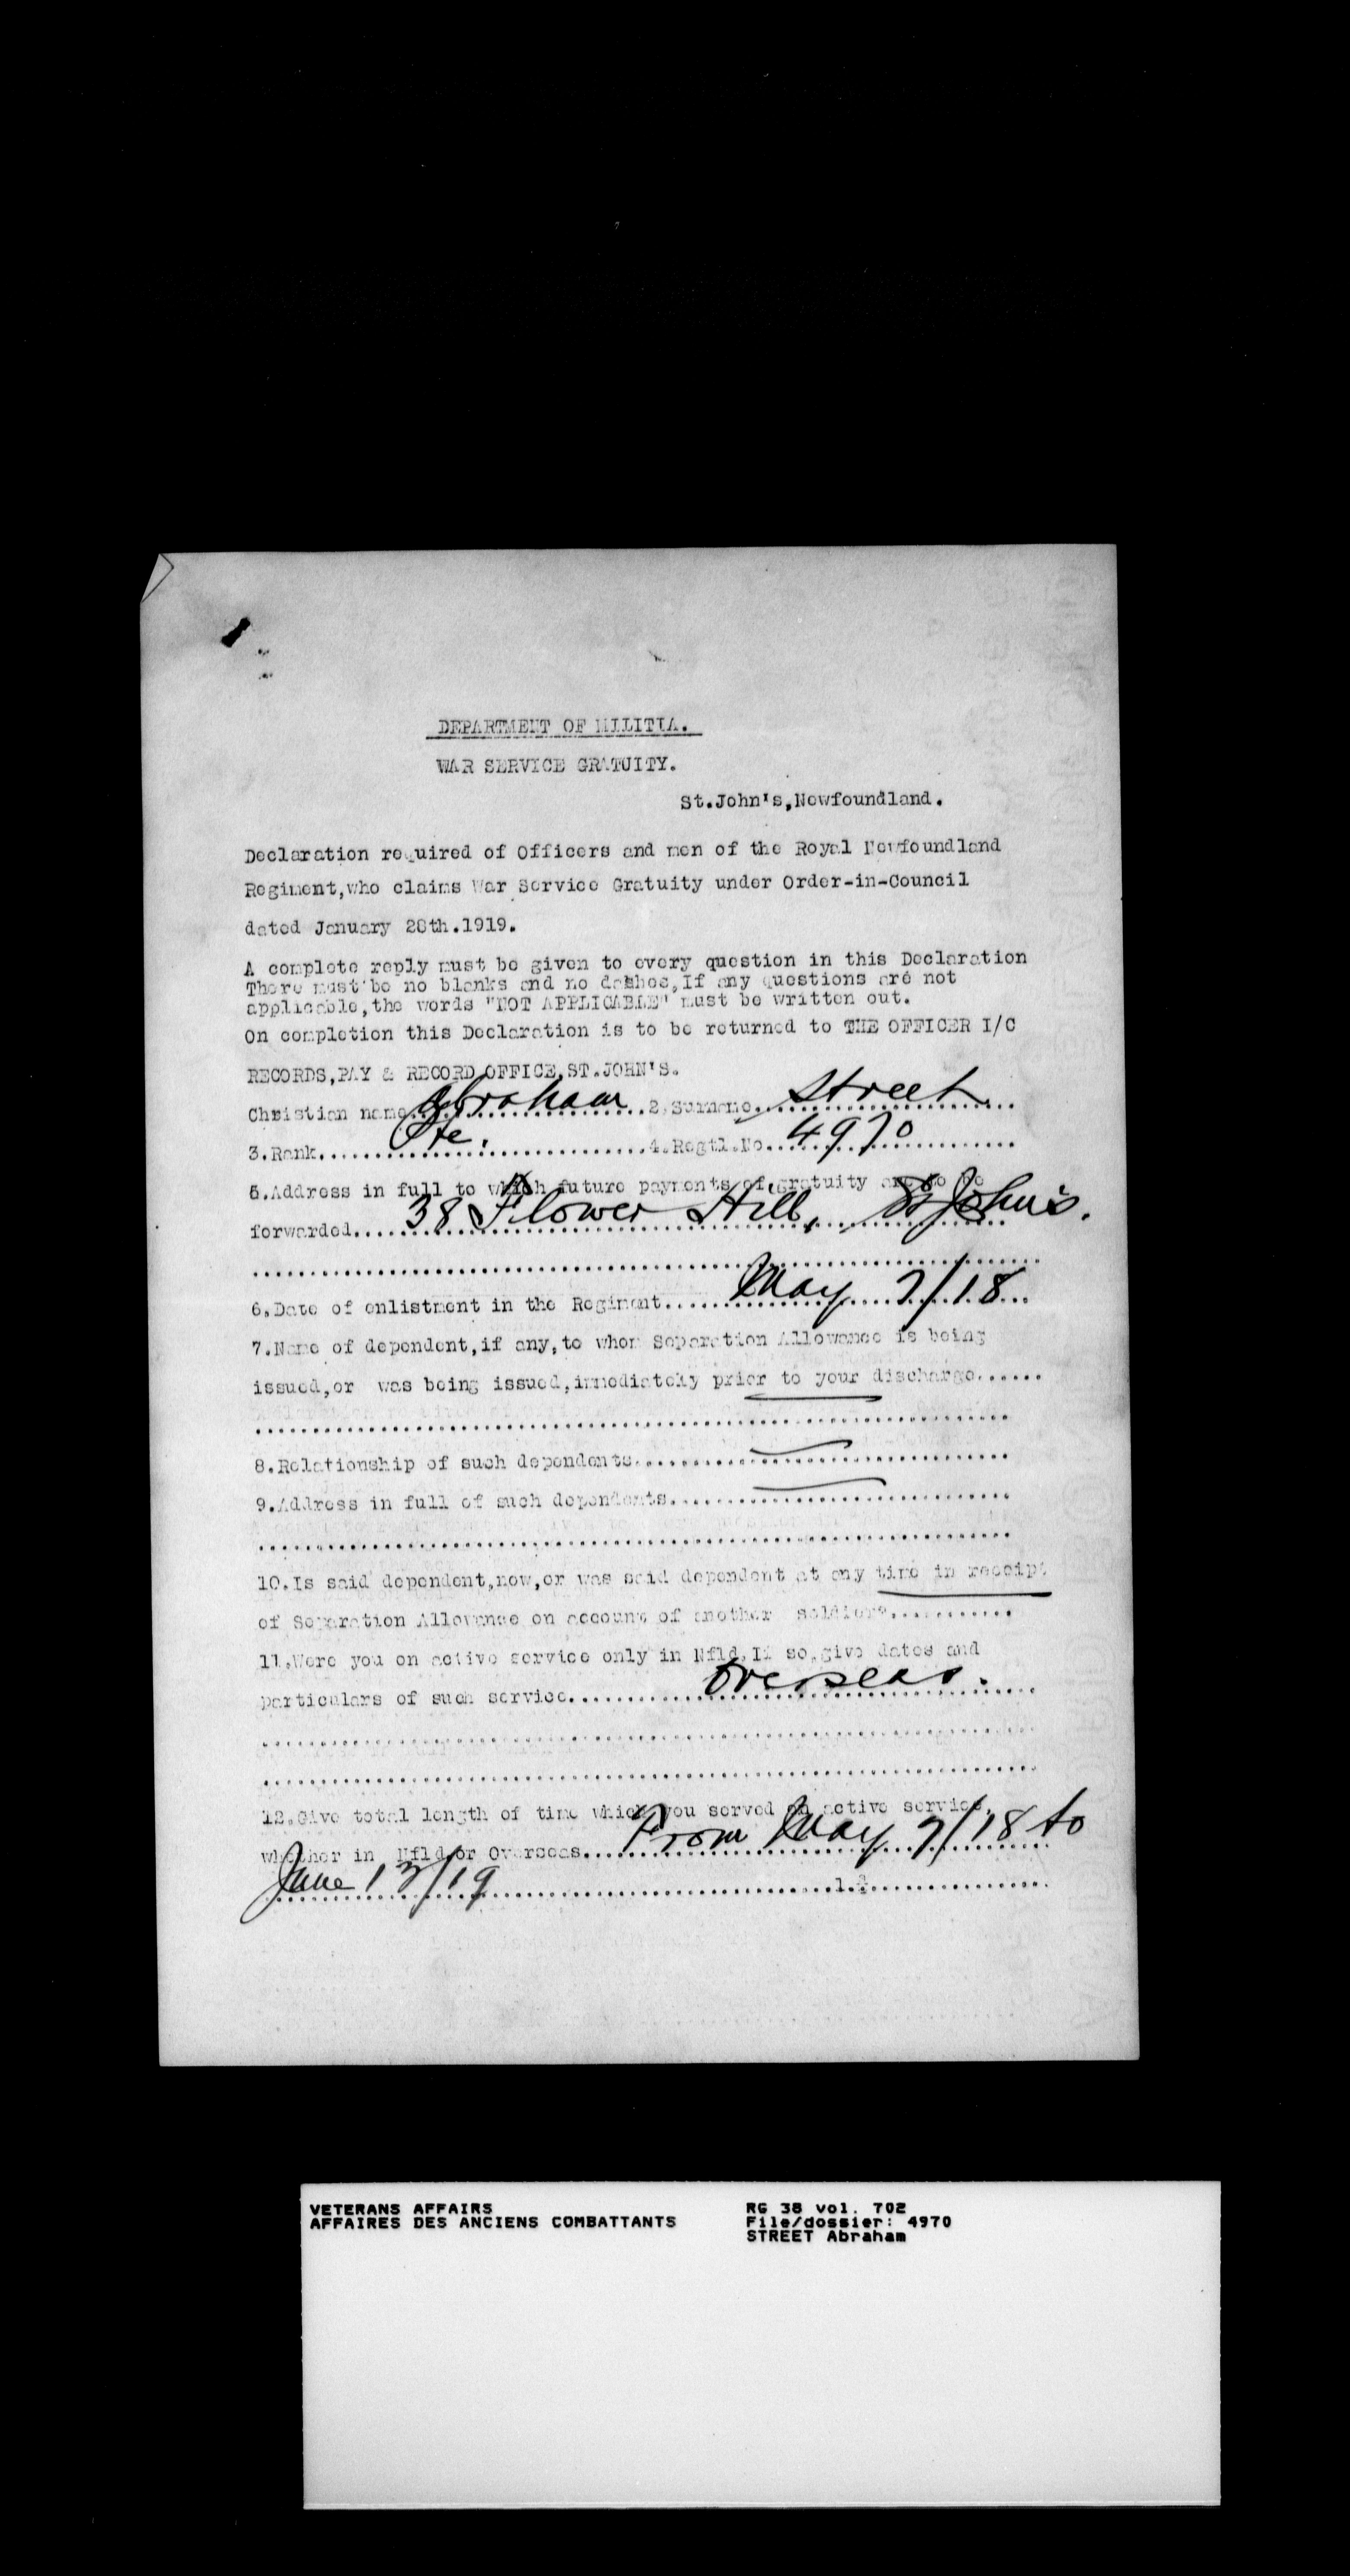 DEPARTMENT OF MILITIA.
WAR SERVICE GRATUITY.
St.John's,Newfoundland.
Declaration required of Officers and men of the Royal Newfoundland
Regiment,who claims War Service Gratuity under Order-in-Council
dated January 28th.1919.
A complete reply must be given to every question in this Declaration
There must be no blanks and no dashes,If any questions are not
applicable,the words "NOT APPLICABLE" must be written out.
On completion this Declaration is to be returned to THE OFFICER I/C
RECORDS,PAY & RECORD OFFICE,ST.JOHN'S.
Christian name..Abraham..2.Surname..Street..
3.Rank..Pte...4.Regtl.No..4970..
5.Address in full to which future payments of gratuity are to be
forwarded....38 Flower Hill, St John's.
6.Date of enlistment in the Regiment....May 7/18...
7.Name of dependent,if any,to whom Separation Allowance is being
issued,or was being issued,immediately prior to your discharge......
8.Relationship of such dependents....
9.Address in full of such dependents....
10.Is said dependent,now,or was said dependent at any time in receipt
of Separation Allowance on account of another soldier?...........
11.Were you on active service only in Nfld,If so,give dates and
particulars of such service....Overseas.
12.Give total length of time which you served on active service,
whether in Nfld or Overseas...From May 7/18 to
June 13/19
VETERANS AFFAIRS
AFFAIRES DES ANCIENS COMBATTANTS
RG 38 vol. 702
File/dossier: 4970
STREET Abraham